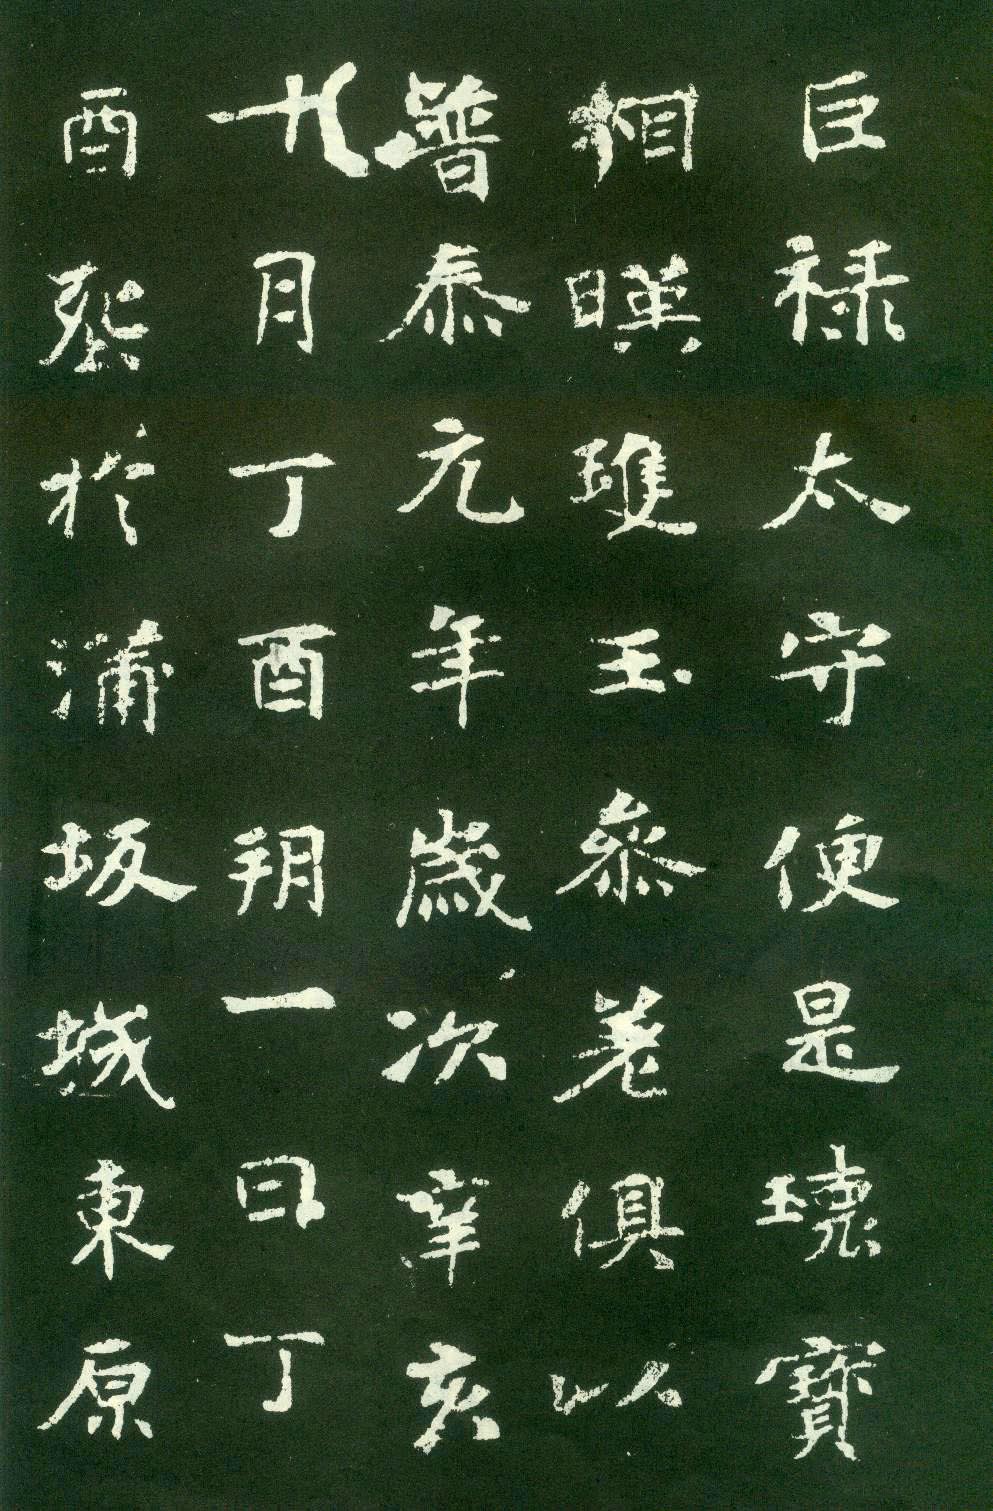 巨祿太守便是瓌寶
相暎瓊玉參差俱以
普泰元年歲次辛亥
十月丁酉朔一日丁
酉葬於蒲坂城東原